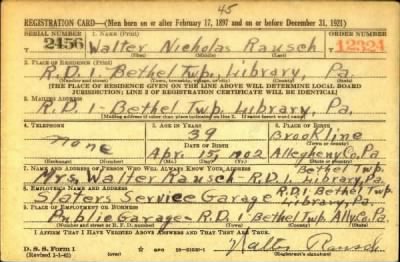 45
REGISTRATION CARD—(Men born on or after February 17, 1897 and on or before December 31, 1921)
SERIAL NUMBER 1. NAME (Print) ORDER NUMBER
2456 Walter Nicholas Rausch 12324
(First) (Middle) (Last)
2. PLACE OF RESIDENCE (Print)
R.D. 1 - Bethel Twp. Library, Pa.
(Number and street) (Town, township, village, or city) (County) (State)
[THE PLACE OF RESIDENCE GIVEN ON THE LINE ABOVE WILL DETERMINE LOCAL BOARD
JURISDICTION; LINE 2 OF REGISTRATION CERTIFICATE WILL BE IDENTICAL]
3. MAILING ADDRESS
R.D. 1 - Bethel Twp. Library, Pa.
[Mailing address if other than place indicated on line 2. If same insert word same]
4. TELEPHONE 5. AGE IN YEARS 6. PLACE OF BIRTH
39 Brookline
none DATE OF BIRTH (Town or county)
Apr. 15, 1902 Allegheny Co. Pa.
(Exchange) (Number) (Mo.) (Day) (Yr.) (State or country)
7. NAME AND ADDRESS OF PERSON WHO WILL ALWAYS KNOW YOUR ADDRESS Bethel Twp.
Mrs. Walter Rausch - R.D. 1. Library, Pa.
8. EMPLOYER'S NAME AND ADDRESS R.D. 1 Bethel Twp
Slaters Service Garage Library, Pa.
9. PLACE OF EMPLOYMENT OR BUSINESS
Public Garage - R.D. 1 Bethel Twp Ally. Co. Pa.
(Number and street or R. F. D. number) (Town) (County) (State)
I AFFIRM THAT I HAVE VERIFIED ABOVE ANSWERS AND THAT THEY ARE TRUE.
D. S. S. Form 1
(Revised 1-1-42) GPO 16—21630-1 Walter Rausch
(Registrant's signature)